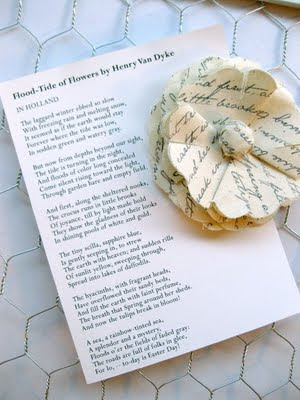 Flood-Tide of Flowers by Henry Van Dyke
IN HOLLAND
The laggard winter ebbed so slow
With freezing rain and melting snow,
It seemed as if the earth would stay
Forever where the tide was low,
In sodden green and watery gray.
But now from depths beyond our sight,
The tide is turning in the night,
And floods of color long concealed
Come silent rising toward the light,
Through garden bare and empty field.
And first, along the sheltered nooks,
The crocus runs in little brooks
Of joyance, till by light made bold
They show the gladness of their looks
In shining pools of white and gold.
The tiny scilla, sapphire blue,
Is gently seeping in, to strew
The earth with heaven; and sudden rills
Of sunlit yellow, sweeping through,
Spread into lakes of daffodils.
The hyacinths, with fragrant heads,
Have overflowed their sandy beds,
And fill the earth with faint perfume,
The breath that Spring around her sheds.
And now the tulips break in bloom!
A sea, a rainbow-tinted sea,
A splendor and a mystery,
Floods o'er the fields of faded gray:
The roads are full of folks in glee,
For lo, -- to-day is Easter Day!
little brooking